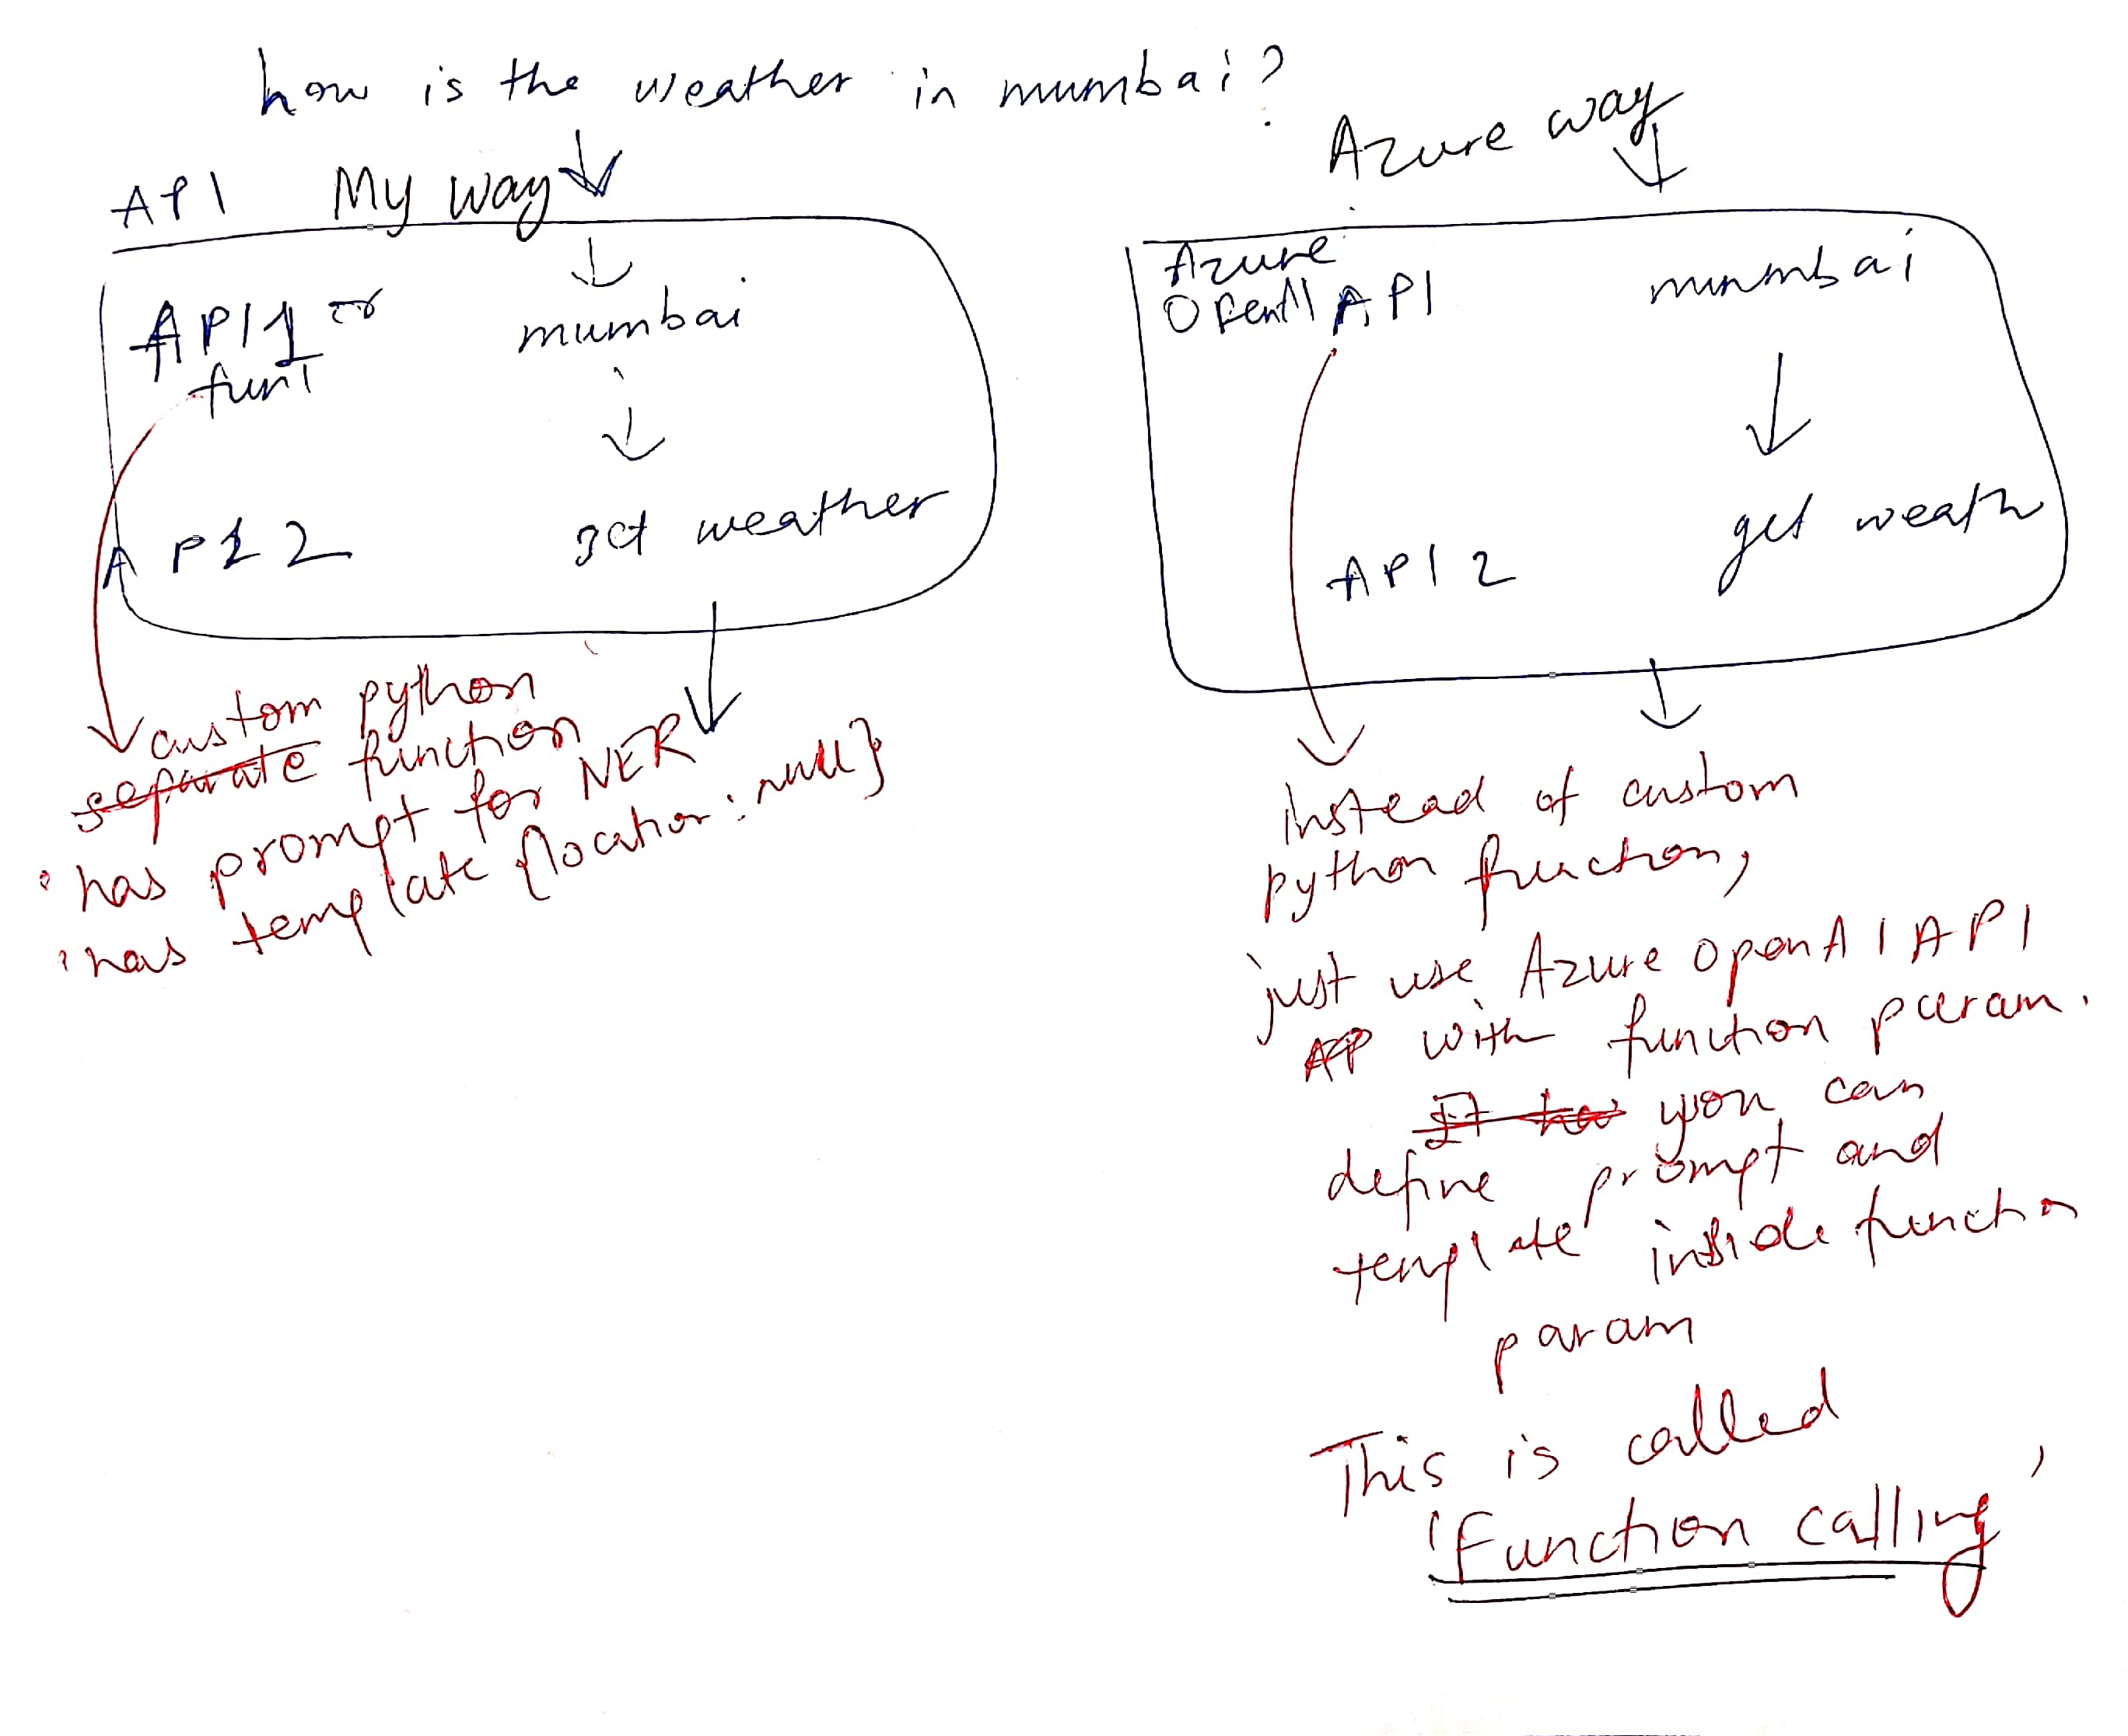 how is the weather in mumbai?
API My way
API 1 or
fun1
mumbai
API 2
get weather
custom python
separate function
has prompt for NER
has template {location: null}
Azure way
Azure
OpenAI API
mumbai
API 2
get weath
instead of custom
python function,
just use Azure OpenAI API
AP with function param.
It has you can
define prompt and
template inside function
param
This is called
'Function calling'